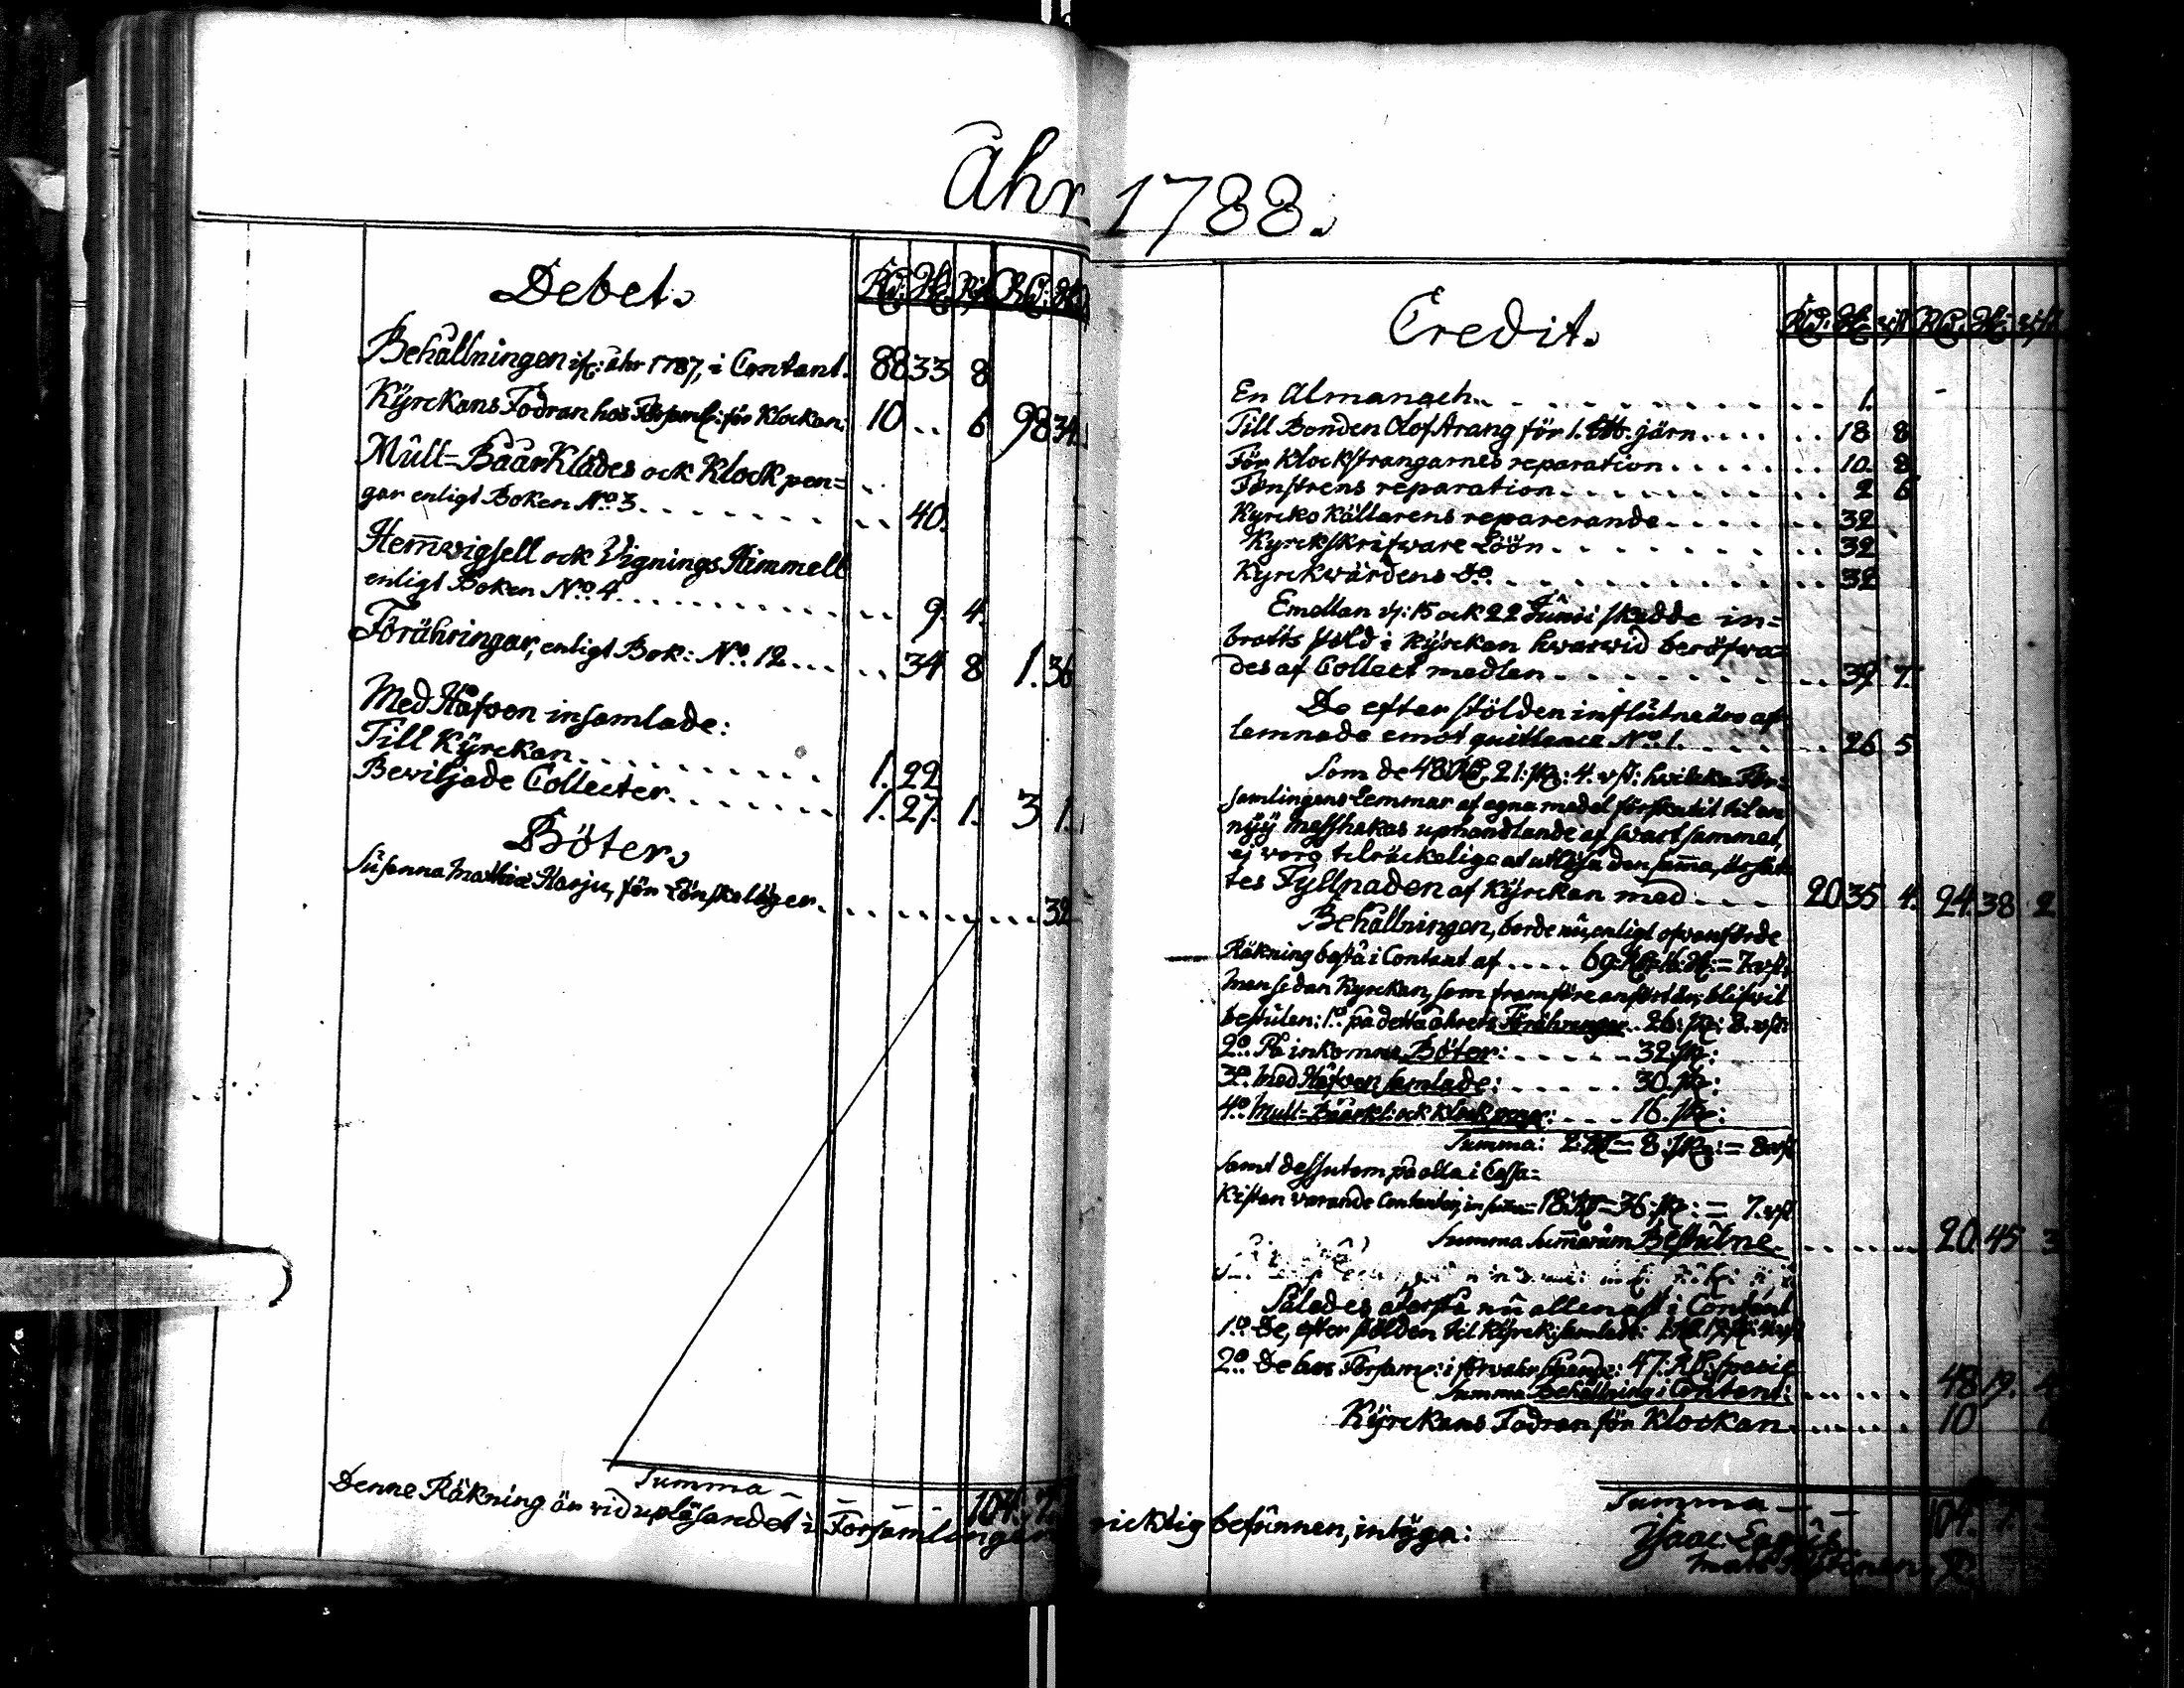 Åhr 1788.
Debet.
Rd. sk. rst. Rd. sk.
Behållningen ifr: åhr 1787, i Contant. 88 33 8
Kyrckans Fodran hos Församl: för Klockan. 10 .. 6 98 34.
Mull-Bäärklädes ock Klock pen=
gar enligt Boken No. 3. . . . . . . . . . 40.
Hemvigsell ock Vignings Himmell
enligt Boken No. 4. . . . . . . . . . . 9. 4.
Förähringar, enligt Bok: No. 12. . . . . . 34 8 1. 36
Med Håfven insamlade:
Till Kyrckan. . . . . . . . . . 1. 22
Beviljade Collecter. . . . . . . 1. 27. 1. 3 1.
Böter.
Susanna Matthiæ Harju, för Lönskeläger. . . . . . . . . 32
Summa - - - - 104. 7
Denne Räkning är vid upläsandet i Församlingen
Credit.
Rd. sk. rst Rd. sk. rst
En Almanach. . . . . . . . . . . 1.
Till Bonden Olof Arang för 1. järn. . . . . . 18 8
För Klockstrangarnes reparation. . . . . . . 10. 8
Fönstrens reparation. . . . . . . . . . 2 6
Kyrcko källarens reparerande. . . . . . 32
Kyrckskrifware Löön. . . . . . . . . 32
Kyrckwärdens do. . . . . . . . . . 32
Emellan d: 15 ock 22 Junii skedde in=
brotts stöld i Kyrckan hwarwid beröfwa=
des af Collect medlen. . . . . . . . . 39 7.
De efter stölden influtne äro af=
lemnade emot quittance No. 1. . . . . . 26 5
Som de 48 Rd, 21: sk: 4. rst: hvilcka För=
samlingens Lemmar af egna medel förskutit til en
nyy Messhakes uphandlande af swart sammet,
ej voro tilräckelige at utlösa den samma, ärsat=
tes Fyllnaden af Kyrckan med - - - 20 35 4. 24. 38. 2
Behållningen, borde nu, enligt ofvanförde
Räkning bestå i Contant af . . . . 69: Rd: 16: sk: = 7. rst:
Men sedan Kyrckan, som framföre anfört är, blifwit
bestulen: 1o. på detta åhrets Förähringar. . 26: sk: 8. rst:
2o. På inkomne Böter: . . . . . 32. sk:
3o. Med Håfven samlade: . . . . . 30. sk:
4o. Mull-Bäärkl: ock Klock peng: . . . . 16. sk:
Summa: 2. Rd = 8. sk: = 8 rst
samt dessutom på alla i Cassa=
Kistan varande Contanter, in summa 18. Rd = 36: sk: = 7. rst
Summa Summarum Bestulne. . . . . . . 20. 45 3
Således återstå nu allenast i Contant
1o. De, efter stölden til Kyrck: samlade: 1. Rd. 19. sk: 4. rst
2o. De hos Församl: i förwahr stående: 47: Rd: specie
Summa Behållning i Contant: . . . . . 48 19. 4
Kyrckans Fodran för Klockan. . . . . . 10 6
Summa - - - 104. 7.
ricktig befunnen, intyga:
Isaac